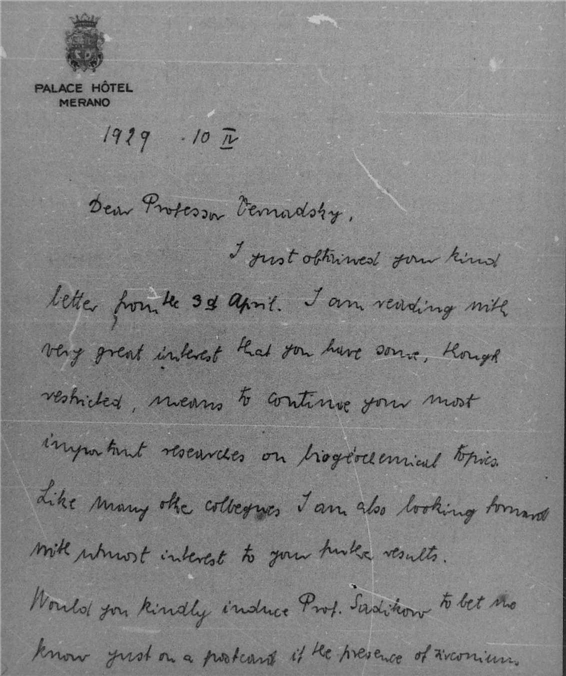 PALACE HÔTEL
MERANO
1929 .10 IV
Dear Professor Vernadsky,
I just obtained your kind
letter from the 3d April. I am reading with
very great interest that you have some, though
restricted, means to continue your most
important researches on biogeochemical topics.
Like many othe collegues I am also looking forward
with utmost interest to your further results.
Would you kindly induce Prof. Sadikow to let me
know just on a postcard if the presence of zirconium